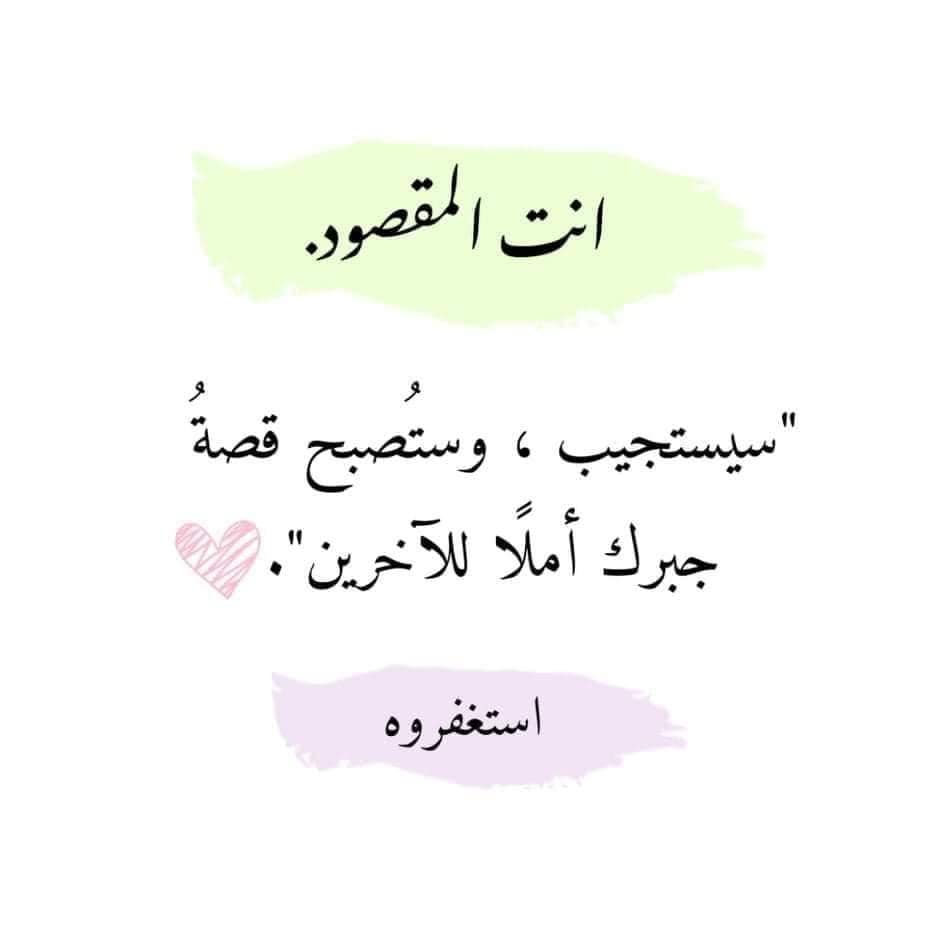 انت المقصود.
"سيستجيب ، وستُصبح قصةُ
جبرك أملًا للآخرين".
استغفروه